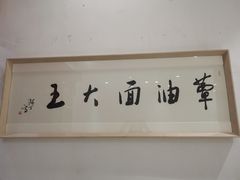 蕈油面大王